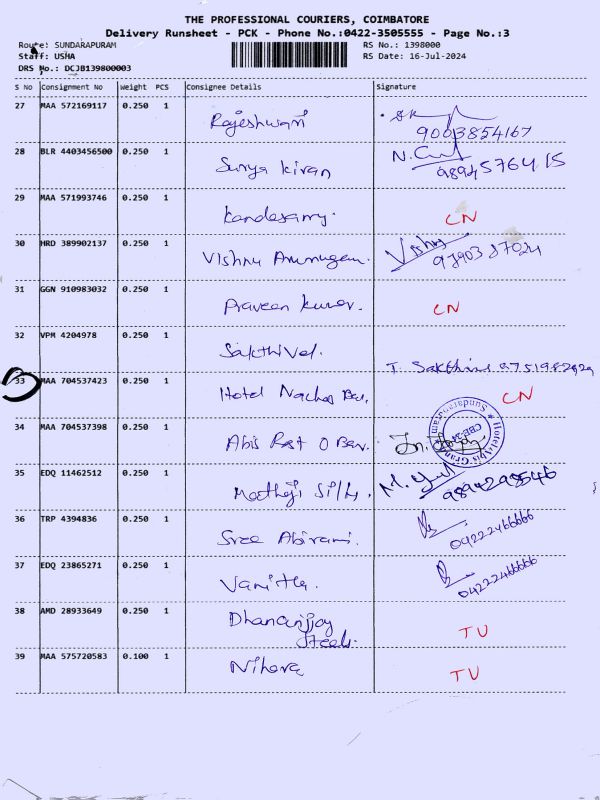 THE PROFESSIONAL COURIERS, COIMBATORE
Delivery Runsheet - PCK - Phone No.:0422-3505555 - Page No.:3
Route: SUNDARAPURAM
RS No.: 1398000
Staff: USHA
RS Date: 16-Jul-2024
DRS No.: DCJB139800003
S No Consignment No Weight PCS Consignee Details Signature
27 MAA 572169117 0.250 1
Rajeshwari 9003854167
28 BLR 4403456500 0.250 1
Surya Kiran 9894576415
29 MAA 571993746 0.250 1
Kandasamy. CN
30 HRD 389902137 0.250 1
Vishnu Arumugam. Vishnu
31 GGN 910983032 0.250 1
Praveen Kumar. CN
32 VPM 4204978 0.250 1
Sakthivel.
T. Sakthivel
33 MAA 704537423 0.250 1
Hotel CN
34 MAA 704537398 0.250 1
Abis Rest O Bar.
35 EDQ 11462512 0.250 1
36 TRP 4394836 0.250 1
Sree Abirami. 04222466666
37 EDQ 23865271 0.250 1
Vanitha. 04222466666
38 AMD 28933649 0.250 1
Dhananjjoy
Steels. TU
39 MAA 575720583 0.100 1
TU